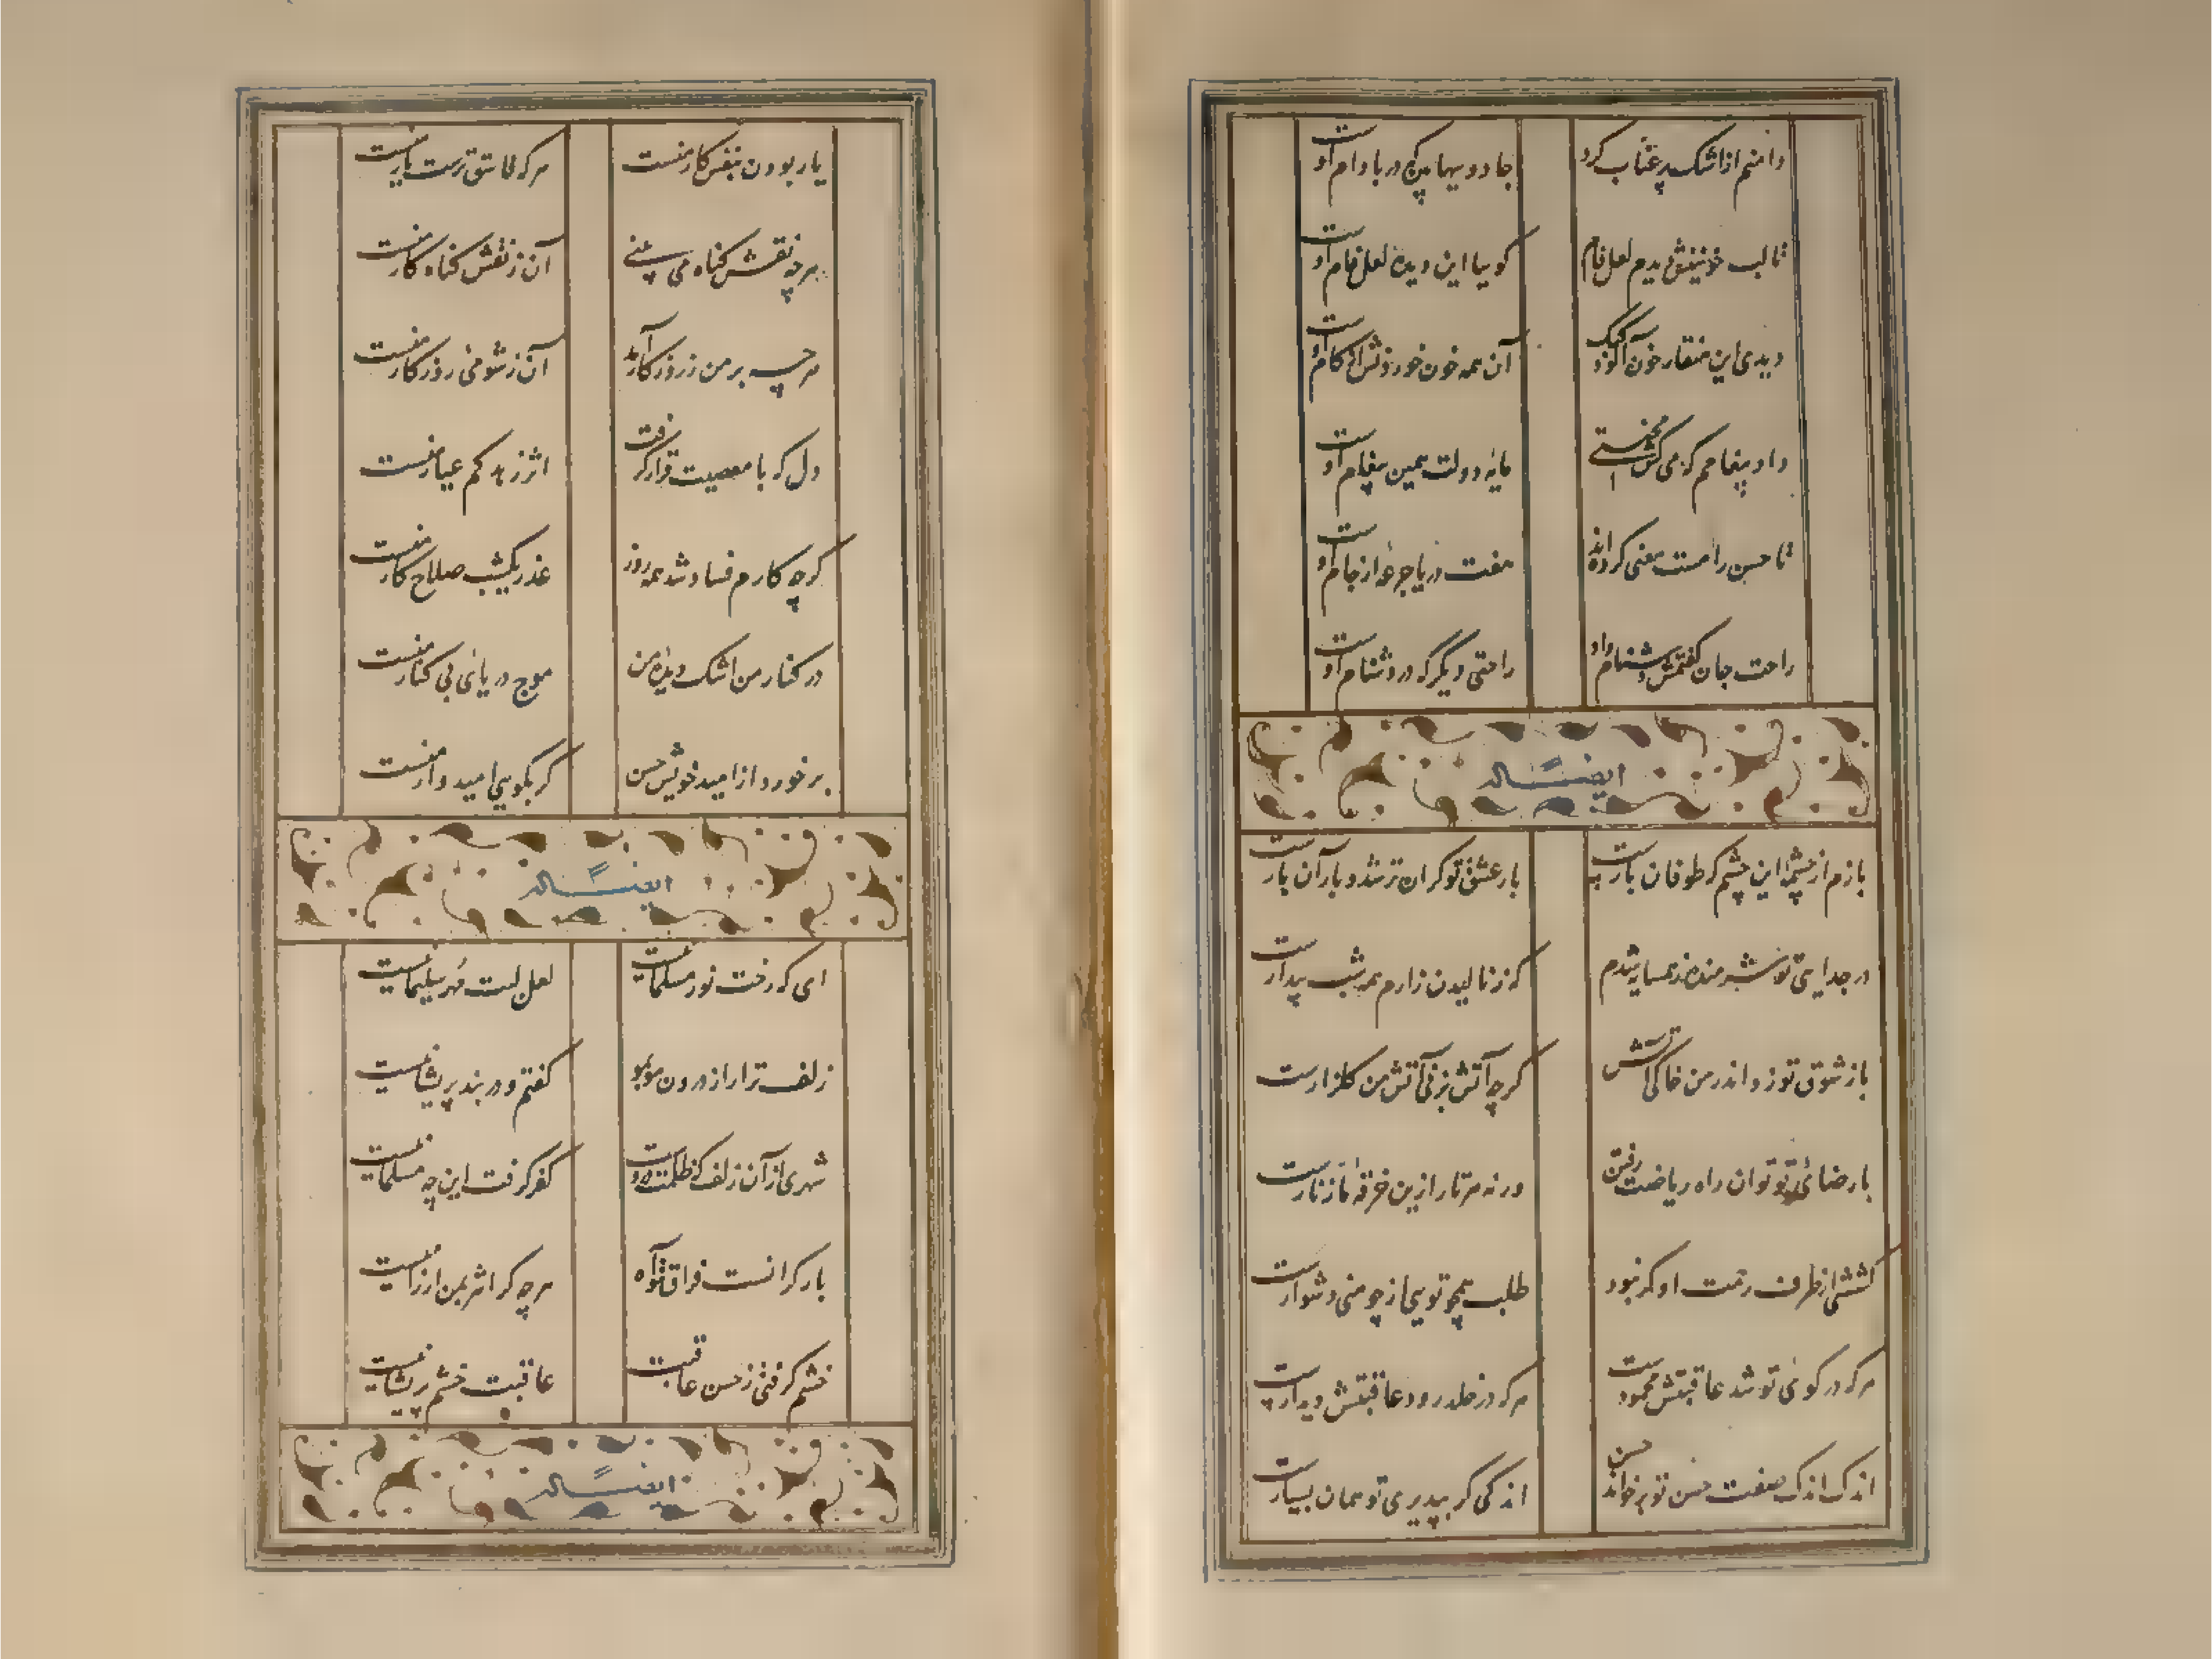 دامنم از اشک پر عناب کرد
جادوییها بین که در بادام اوست
تا لب خونینش دیدم لعل فام
گوییا این دیده لعل فام اوست
دیدی این منقار خون آلود کبک
آن همه خون خوردنش از کام اوست
داد پیغامم که می کش محنتی
مایه دولت همین پیغام اوست
تا حسن را مست معنی کرده اند
هفت دریا جرعه از جام اوست
راحت جان گفتمش دشنام داد
راحتی دیگر که در دشنام اوست
ایضاً له
بازم از چشمه این چشم که طوفان بارست
بار عشق تو گران تر شد و بار آن بارست
در جدایی تو شرمنده ز همسایه شدم
که ز نالیدن زارم همه شب بیدارست
باز شوق تو زد اندر من خاکی آتش
گرچه آتش بزنی آتش من گلزارست
با رضای تو توان راه ریاضت رفتن
ورنه هر تار ازین خرقه ما زنارست
کششی از طرف رحمت او گر نبود
طلب همچو تویی از چو منی دشوارست
هر که در کوی تو شد عاقبتش محمودست
هر که در خلد رود عاقبتش دیدارست
اندک اندک صفت حسن تو بر خواند حسن
اندکی گر بپذیری تو همان بسیارست
یار بودن بنفس کار منست
هر که عاشق ترست یار منست
هر چه نقش گناه می بینی
آن ز نقش گناه کار منست
هر چه بر من ز روزگار آید
آن ز شومی روزگار منست
دل که با معصیت قرار گرفت
اثر زهد کم عیار منست
گرچه کارم فساد شد همه روز
عذر یکشب صلاح کار منست
در کنار من اشک دیده من
موج دریای بی کنار منست
بر خورد از امید خویش حسن
گر بگویی امیدوار منست
ایضاً له
ای که رخت نور مسلمانیست
لعل لبت مهر سلیمانیست
زلف ترا راز درون مو بمو
گفتم و در بند پریشانیست
شهری از آن زلف که ظلمت دروست
کفر گرفت این چه مسلمانیست
بار گرانست فراق تو آه
هر چه گر اثر بمن ارزانیست
خشم گرفتی ز حسن عاقبت
عاقبت خشم پریشانیست
ایضاً له